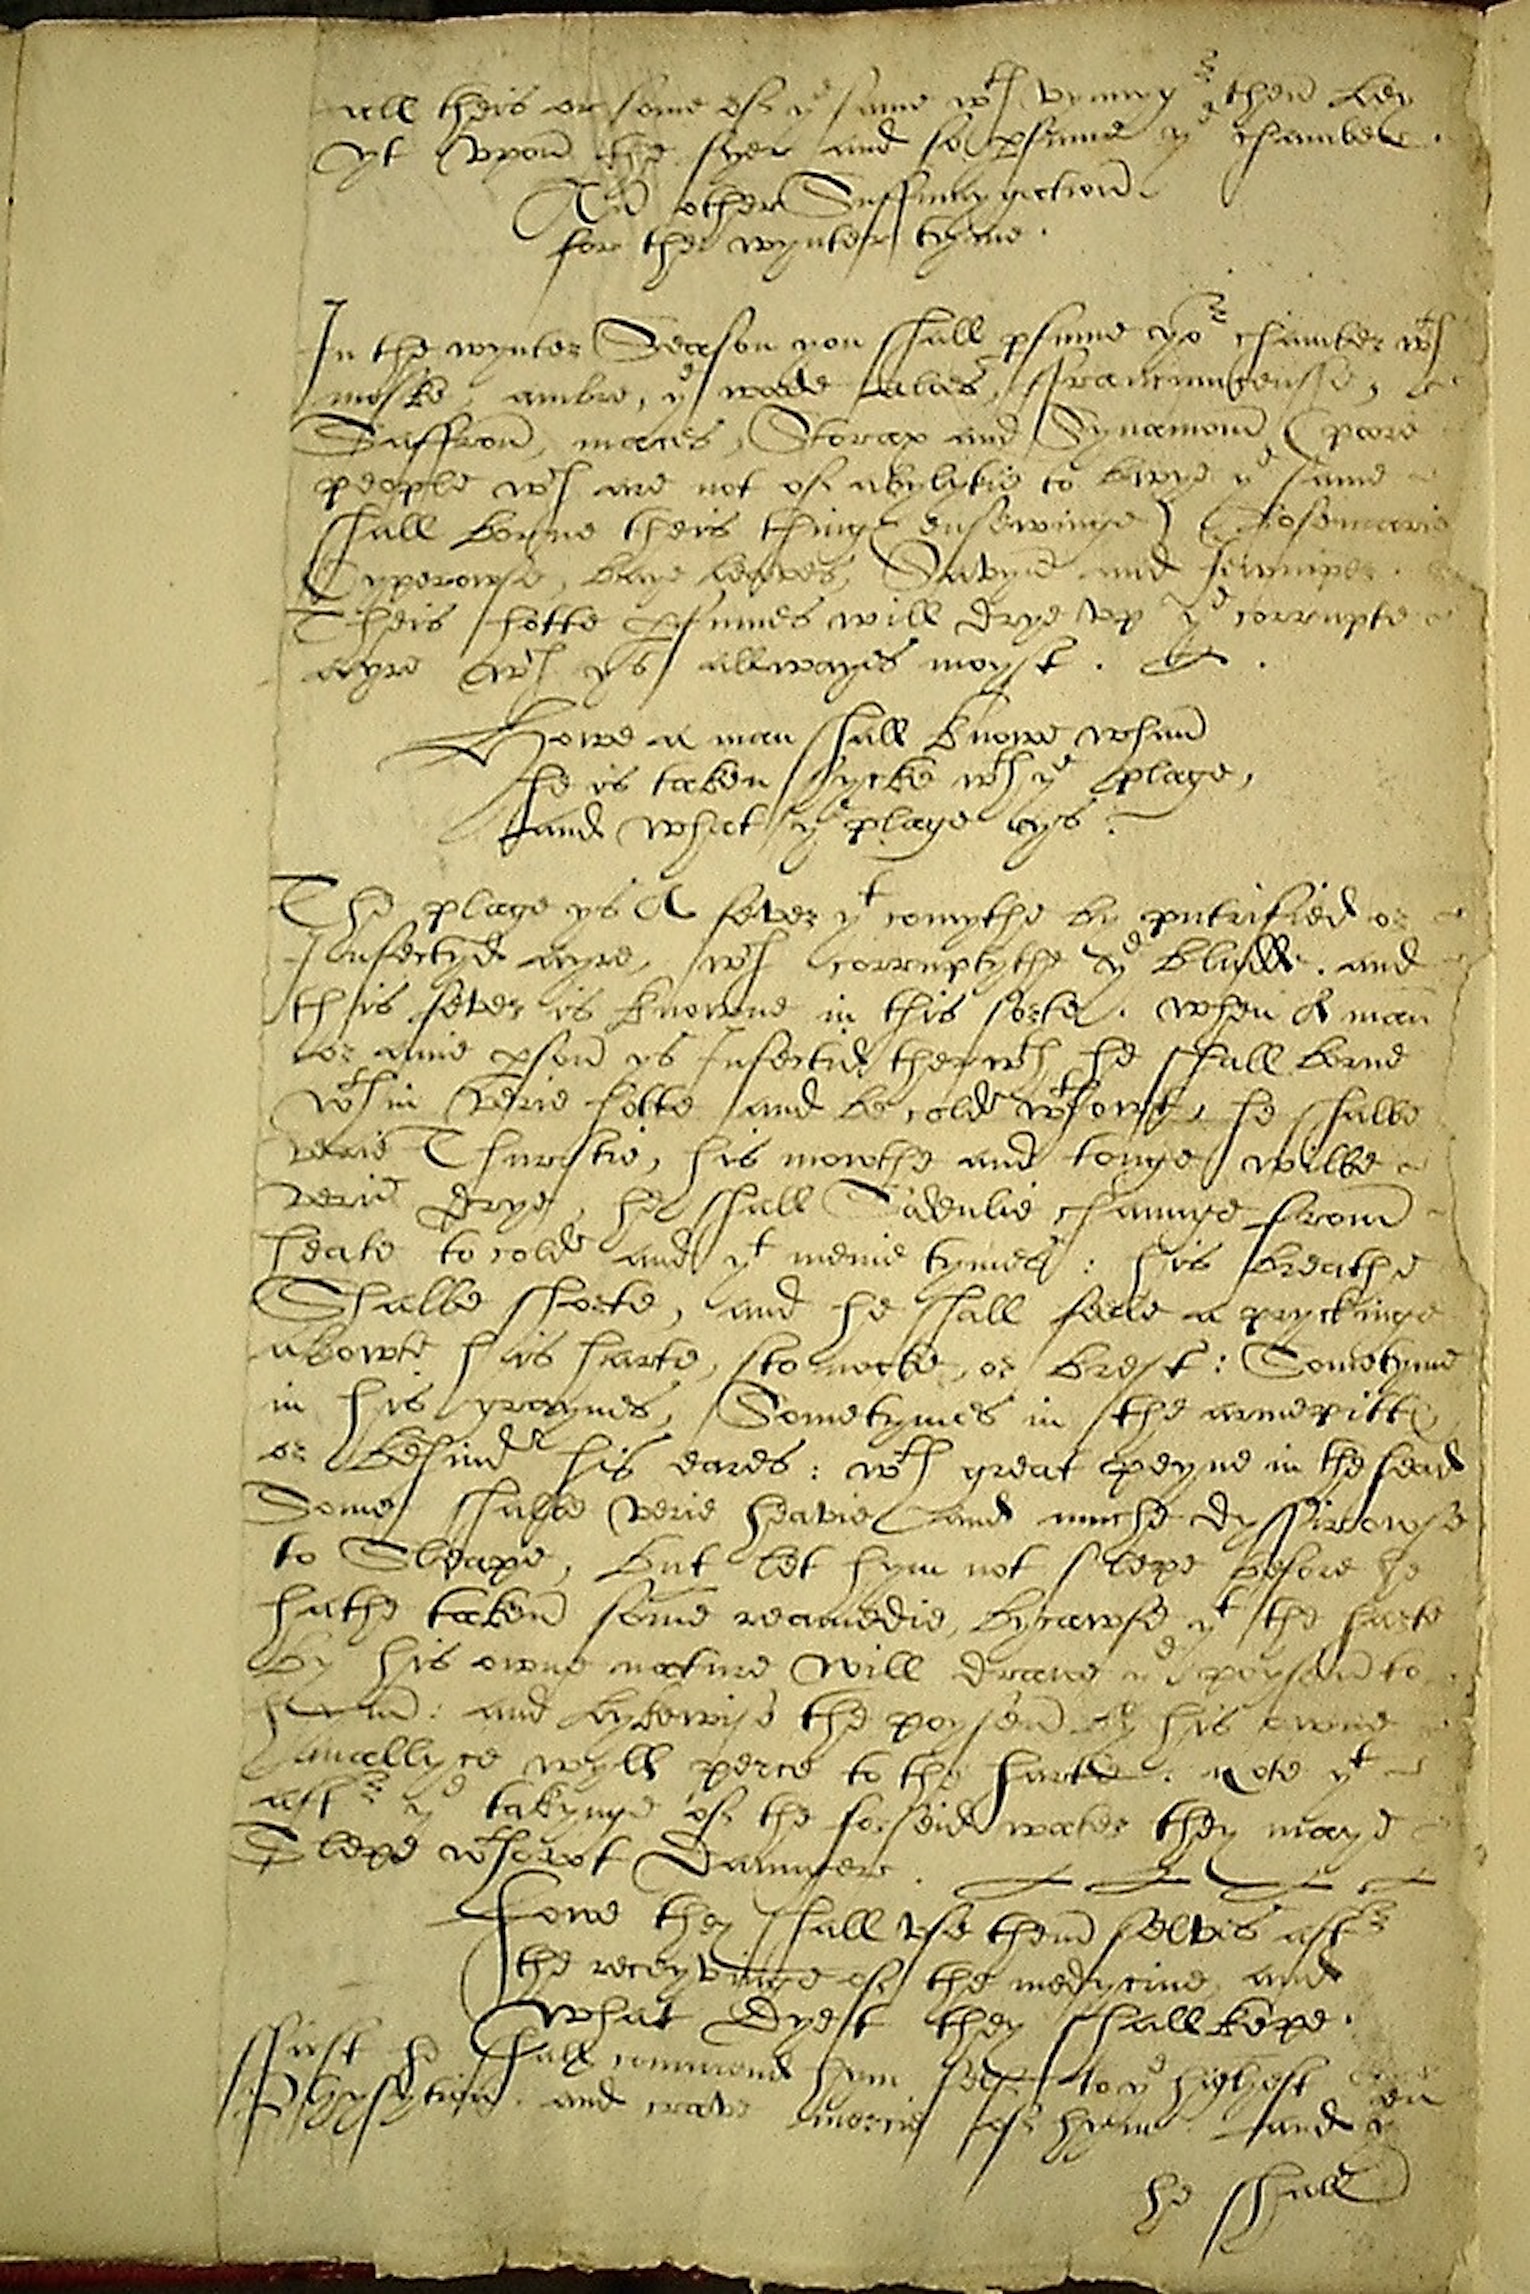 all theis or some of yᵉ same wᵗʰ then ley
yt vpon the fyer and so pfume yᵉ chamber.
An other Suffumygation
for the wynter tyme.
In the wynter Season you shall pfume yoʳ chamber wᵗʰ
muske, ambre, yᵉ wode aloes, ffranckincensse,
Saffron, maces, Storax and Synamom (poore
people wᶜʰ are not of abylytie to bwye yᵉ same
shall borne theis things ensewinge) Rosemarie
Cyperowse, baye leaves, Savyne and Jewniper.
Theis hotte pfumes will drye vp yᵉ corrupte
ayre wᶜʰ ys allwayes moyst.
Howe a man shall knowe whan
he is taken sycke wᵗʰ yᵉ plage,
and what yᵉ plage ys.
The plage ys A fever yᵗ comythe by putrified or
Infectyd ayre, wᶜʰ corruptythe yᵉ bludde. and
this fever is knowne in this sorte. when A man
or anie pson ys Infectid therwᵗʰ he shall borne
wᵗʰin verie hotte and be colde wᵗʰowt, he shalbe
verie Thurstie, his mowthe and tonge wilbe
verie drye, he shall Sodenlie chaunge from
heate to colde and yᵗ menie tymes: his breathe
Shalbe shorte, and he shall feele a pryckinge
abowte his harte, stomocke, or brest: Sometyme
in his graynes, Sometymes in the armepitte
or behinde his eares: wᵗʰ great peyne in the head
Some shalbe verie heavie and muche dyssirowse
to Sleape, but let hym not slepe before he
hathe taken some reamedie, bycawse yᵗ the harte
by his owne nature will drawe yᵉ poyson to
hym: and lykewise the poyson by his owne
mallyce wyll perce to the harte. Note yᵗ
aftʳ yᵉ takynge of the forseid water they maye
Slepe wᵗʰowt Daunger.
Howe they shall vse them selvis aftʳ
the receyvinge of the medycine, and
what Dyet they shall kepe.
ffirst he shall commend hym self to yᵉ highest
Physytion. and crave mercie of hym and
he shall